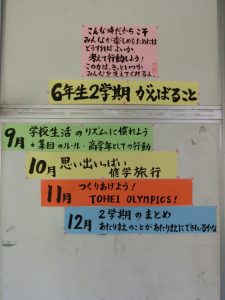 こんな時だからこそ
みんなが楽しめるためには
どうすればよいか
考えて行動しよう!
この力は、きっといつか
みんなを支えてくれるよ
6年生2学期 がんばること
9月 学校生活のリズムに慣れよう
★集団のルール・高学年としての行動
10月 思い出いっぱい
修学旅行
11月 つくりあげよう!
TOHEI OLYMPICS!
12月 2学期のまとめ
あたりまえのことがあたりまえにできてるかな